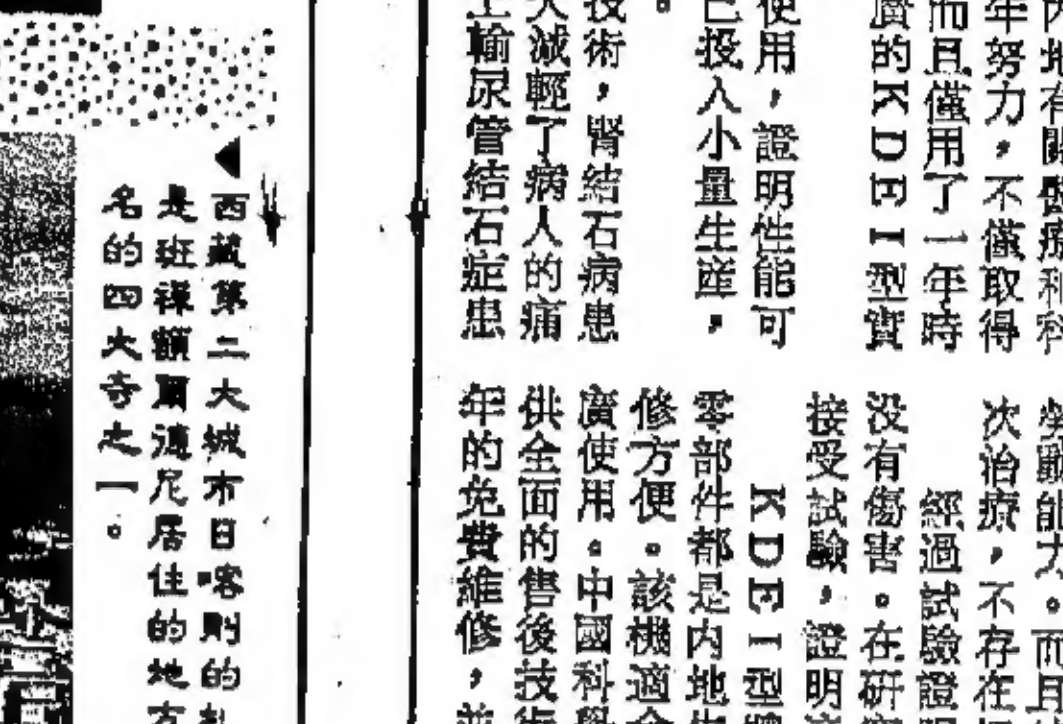 年努力，不僅取得
而且僅用了一年時
廣的KDEI型實
使用，證明性能可
已投入小量生産，
。
技術，腎結石病患
大減輕了病人的痛
上輸尿管結石症患
勞動能力。而且
次治療，不存在
經過試驗證
没有傷害。在研
接受試驗，證明
KDEI型
零部件都是内地
修方便。該機適
廣使用。中國科
供全面的售後技
年的免費維修，
◀西藏第二大城市日喀則的
是班禪額爾德尼居住的地方
名的四大寺之一。